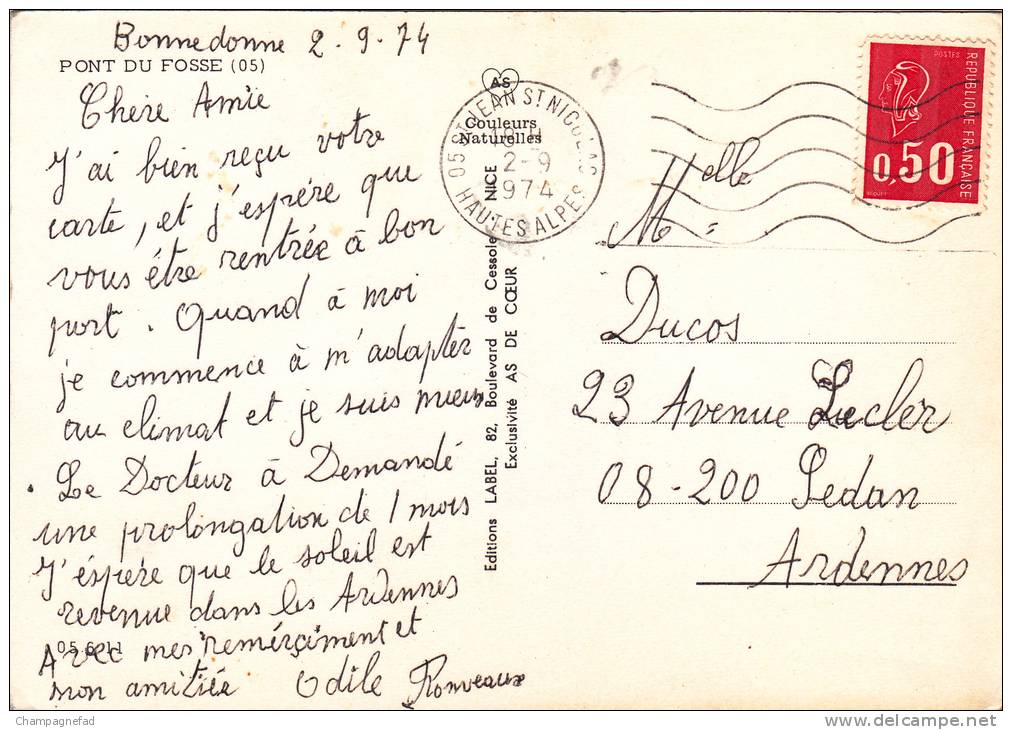 Bonnedonne 2-9-74
PONT DU FOSSE (05)
Chère Amie
J'ai bien reçu votre
carte, et j'espère que
vous étre rentrée à bon
port. Quand à moi
je commence à m'adapter
au climat et je suis mieux
. Le Docteur à Demandé
une prolongation de 1 mois
J'éspère que le soleil est
revenue dans les Ardennes
05.6.11
Avec mes remérçiment et
mon amitiée Odile Ronveaux
AS
Couleurs
Naturelles
Editions LABEL, 82, Boulevard de Cessole NICE
Exclusivité AS DE CŒUR
05 ST JEAN ST NICOLAS
18 H
2-9
1974
HAUTES ALPES
POSTES
REPUBLIQUE FRANÇAISE
0,50
BEQUET
Melle
Ducos
23 Avenue Leclér
08-200 Sedan
Ardennes
Champagnefad
delcampe.net